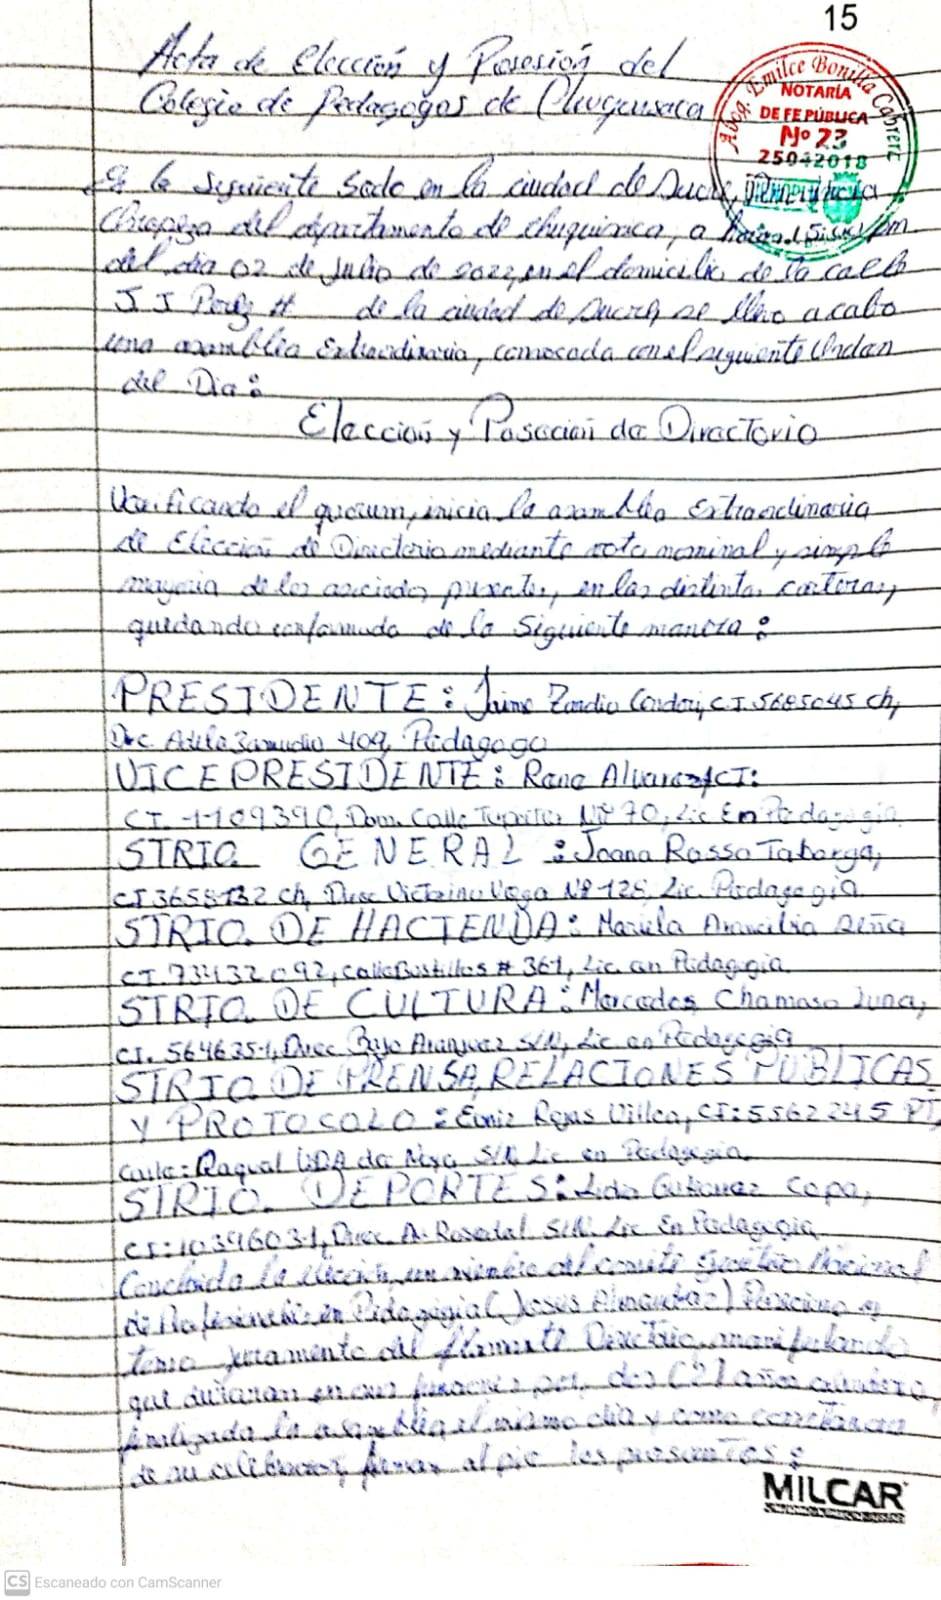 15
Acta de Elección y Posesión del
Colegio de Pedagogos de Chuquisaca
Abog. Emilce Bonilla Cabrera
NOTARÍA
DE FE PÚBLICA
Nº 23
25042018
la siguiente Sede en la ciudad de Sucre,
del departamento de chuquisaca, a pm.
del dia 02 de Julio de 2022, en el domicilio de la calle
J J Perez # de la ciudad de Sucre, se llevo a cabo
una asamblea Extraordinaria, convocada con el siguiente Orden
del Dia:
Elección y Poseción de Directorio
Verificando el quorum, inicia la asamblea Extraordinaria
de Elección de Directorio mediante voto nominal y simple
mayoria de los asociados presentes, en las distintas carteras,
quedando conformado de la Siguiente manera:
PRESIDENTE: Jaime Condori, C.I. 5685045 ch,
Adela Zamudio 409, Pedagogo
VICEPRESIDENTE: Rene Alvarez CI:
CI. 1109390, Dom. Calle Nº 70, Lic En Pedagogia
STRIO. GENERAL: Joana Rosso Taborga,
CI 3658132 ch, Direc Victorino Vega Nº 128, Lic. Pedagogia
STRIO. DE HACIENDA: Mariela Arancibia
CI. 73432092, calle Bustillos # 361, Lic. en Pedagogia
STRIO. DE CULTURA: Mercedes Luna,
CI. 5646351, Direc Bajo Aranjuez S/N, Lic en Pedagogia
STRIO DE PRENSA, RELACIONES PUBLICAS
Y PROTOCOLO: Rojas Villca, CI: 5562245 PT,
calle: Raquel S/N Lic en Pedagogia
STRIO. DEPORTES: Lidia Gutierrez Copa,
CI: 10396031, Direc. A. Rosedal S/N. Lic En Pedagogia
Concluida la elección, un miembro del comité Nacional
de en Pedagogia
juramento del flamante Directorio, manifestando
que duraran en sus funciones por dos (2) años
finalizada la asamblea el mismo dia y como constancia
de su celebracion, firman al pie los presentes:
MILCAR
CS Escaneado con CamScanner